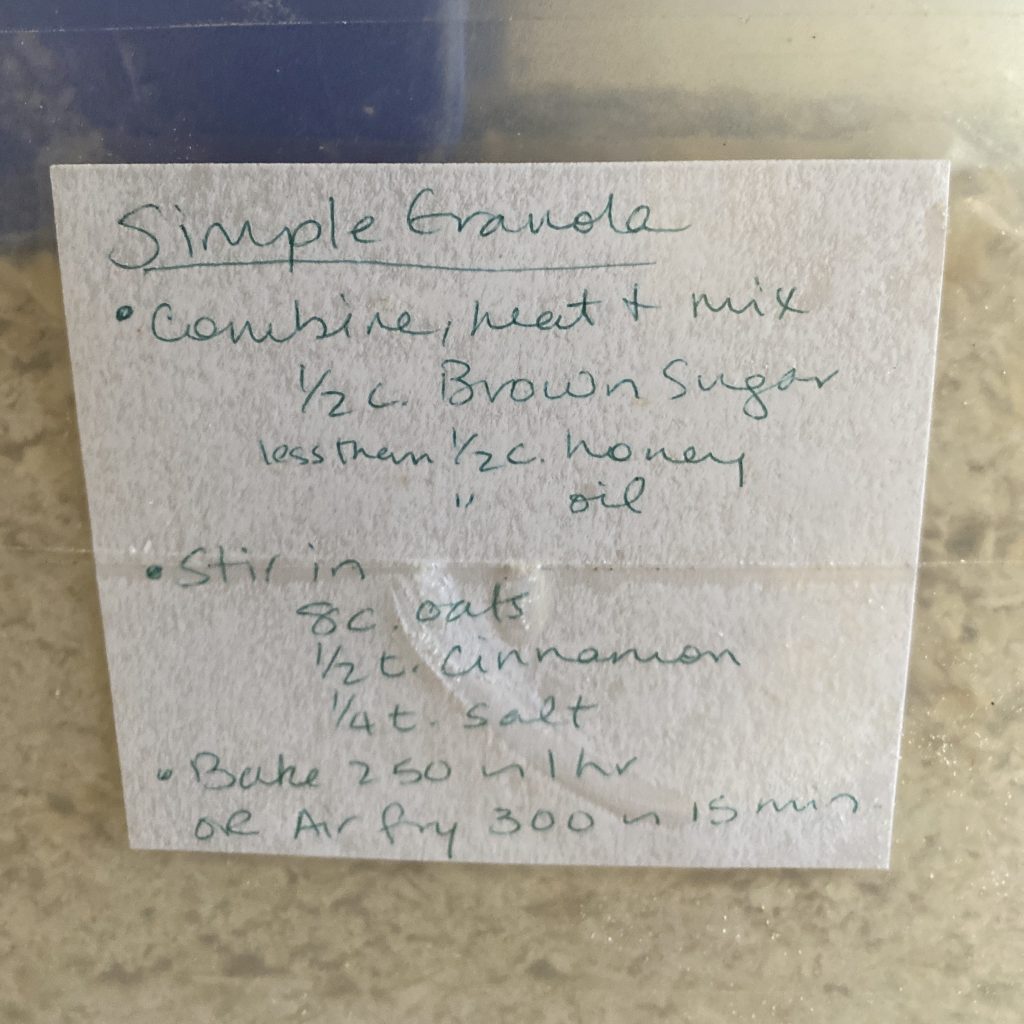 Simple Granola
• Combine, heat + mix
1/2 c. Brown Sugar
less than 1/2 c. honey
" oil
• Stir in
8c. oats
1/2 t. Cinnamon
1/4 t. salt
• Bake 250 ~ 1 hr
OR Air fry 300 ~ 15 min.